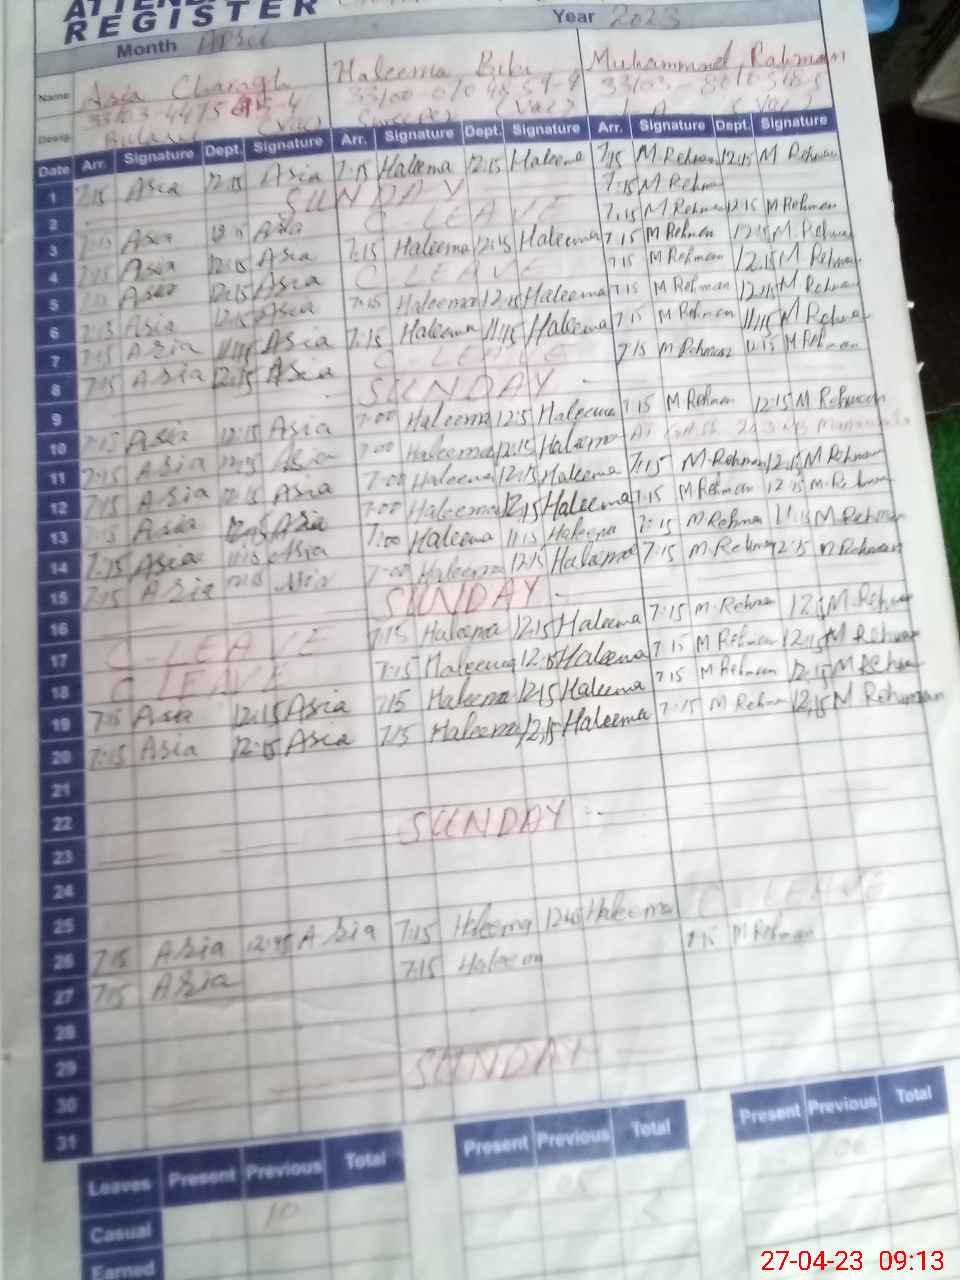 REGISTER
Month April Year 2023
Name Asia Charagh Haleema Bibi Muhammad Rahman
Desig.
Date Arr. Signature Dept. Signature Arr. Signature Dept. Signature Arr. Signature Dept. Signature
1 7:15 Asia 12:15 Asia 7:15 Haleema 12:15 Haleema 7:15 M.Rehman 12:15 M Rehman
2 SUNDAY 7:15 M Rehman
3 7:15 Asia Asia C-LEAVE 7:15 M Rehman 12:15 M Rehman
4 7:15 Asia 12:15 Asia 7:15 Haleema 12:15 Haleema 7:15 M Rehman 12:15 M Rehman
5 Asia 12:15 Asia C LEAVE 7:15 M Rehman 12:15 M Rehman
6 7:15 Asia 12:15 Asia 7:15 Haleema 12:15 Haleema 7:15 M Rehman 12:15 M Rehman
7 7:15 Asia 11:15 Asia 7:15 Haleema 11:15 Haleema 7:15 M Rehman 11:15 M Rehman
8 7:15 Asia 12:15 Asia C LEAVE 7:15 M Rehman 12:15 M Rehman
9 SUNDAY
10 7:15 Asia 12:15 Asia 7:00 Haleema 12:15 Haleema 7:15 M Rehman 12:15 M Rehman
11 7:15 Asia 12:15 Asia 7:00 Haleema 12:15 Haleema
12 7:15 Asia 12:15 Asia 7:00 Haleema 12:15 Haleema 7:15 M.Rehman 12:15 M Rehman
13 7:15 Asia 12:15 Asia 7:00 Haleema 12:15 Haleema 7:15 M Rehman 12:15 M.Rehman
14 7:15 Asia Asia 7:00 Haleema 11:15 Haleema 7:15 M Rehman 11:15 M Rehman
15 7:15 Asia Asia 7:00 Haleema 12:15 Haleema 7:15 M.Rehman 12:15 M.Rehman
16 SUNDAY
17 C-LEAVE 7:15 Haleema 12:15 Haleema 7:15 M.Rehman 12:15 M.Rehman
18 C LEAVE 7:15 Haleema 12:15 Haleema 7:15 M Rehman 12:15 M Rehman
19 7:15 Asia 12:15 Asia 7:15 Haleema 12:15 Haleema 7:15 M Rehman 12:15 M Rehman
20 7:15 Asia 12:15 Asia 7:15 Haleema 12:15 Haleema 7:15 M Rehman 12:15 M Rehman
21
22
23 SUNDAY
24
25 C LEAVE
26 7:15 Asia 12:45 Asia 7:15 Haleema 12:45 Haleema
27 7:15 Asia 7:15 Haleem 7:15 M Rehman
28
29
30 SUNDAY
31
Leaves Present Previous Total Present Previous Total Present Previous Total
Casual 10 05 06
Earned
27-04-23 09:13